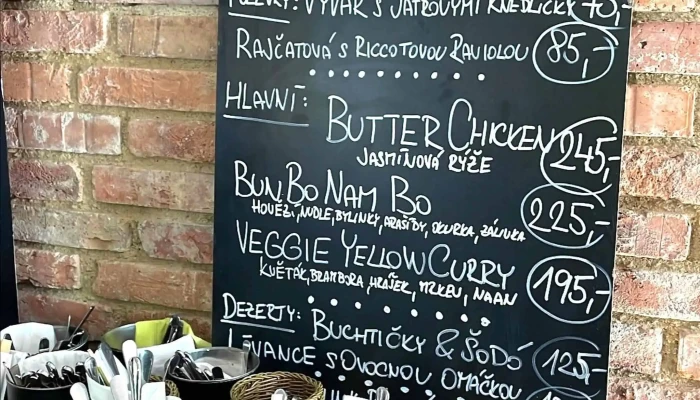 POLÉVKY: VÝVAR S JÁTROVÝMI KNEDLÍČKY 70,-
RAJČATOVÁ S RICCOTOVOU RAVIOLOU 85,-
HLAVNÍ:
BUTTER CHICKEN 245,-
JASMÍNOVÁ RÝŽE
BUN BO NAM BO 225,-
HOVĚZÍ, NUDLE, BYLINKY, ARAŠÍDY, OKURKA, ZÁLIVKA
VEGGIE YELLOW CURRY 195,-
KVĚTÁK, BRAMBORA, HRÁŠEK, MRKEV, NAAN
DEZERTY: BUCHTIČKY & ŠODÓ 125,-
LÍVANCE S OVOCNOU OMÁČKOU